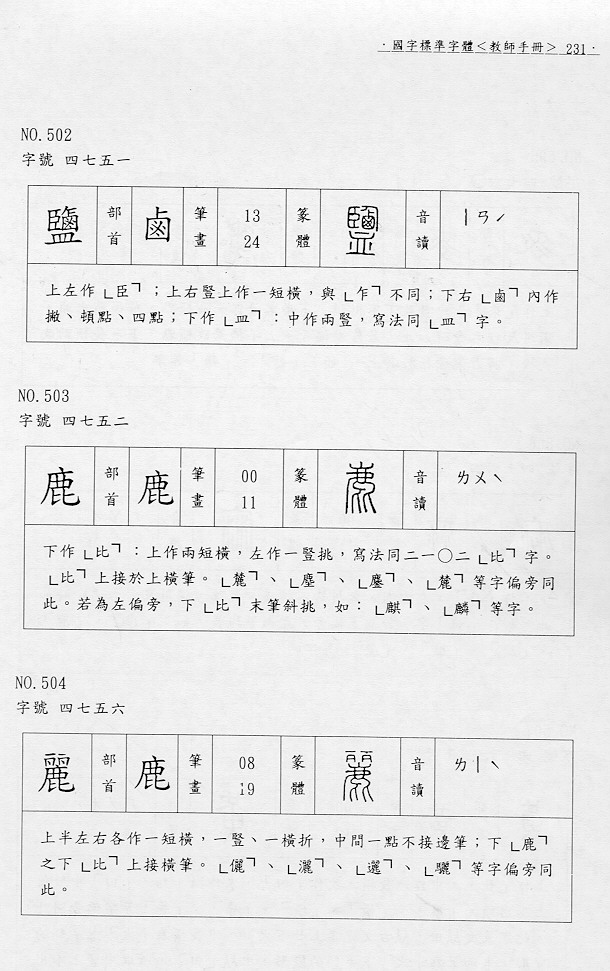 ·國字標準字體＜教師手冊＞ 231·
NO.502
字號 四七五一
鹽 部首 鹵 筆畫 13 24 篆體 鹽 音讀 ㄧㄢˊ
上左作「臣」；上右豎上作一短橫，與「乍」不同；下右「鹵」內作
撇、頓點、四點；下作「皿」：中作兩豎，寫法同「皿」字。
NO.503
字號 四七五二
鹿 部首 鹿 筆畫 00 11 篆體 鹿 音讀 ㄌㄨˋ
下作「比」：上作兩短橫，左作一豎挑，寫法同二一〇二「比」字。
「比」上接於上橫筆。「麓」、「塵」、「鏖」、「麓」等字偏旁同
此。若為左偏旁，下「比」末筆斜挑，如：「麒」、「麟」等字。
NO.504
字號 四七五六
麗 部首 鹿 筆畫 08 19 篆體 麗 音讀 ㄌㄧˋ
上半左右各作一短橫，一豎、一橫折，中間一點不接邊筆；下「鹿」
之下「比」上接橫筆。「儷」、「灑」、「邐」、「驪」等字偏旁同
此。